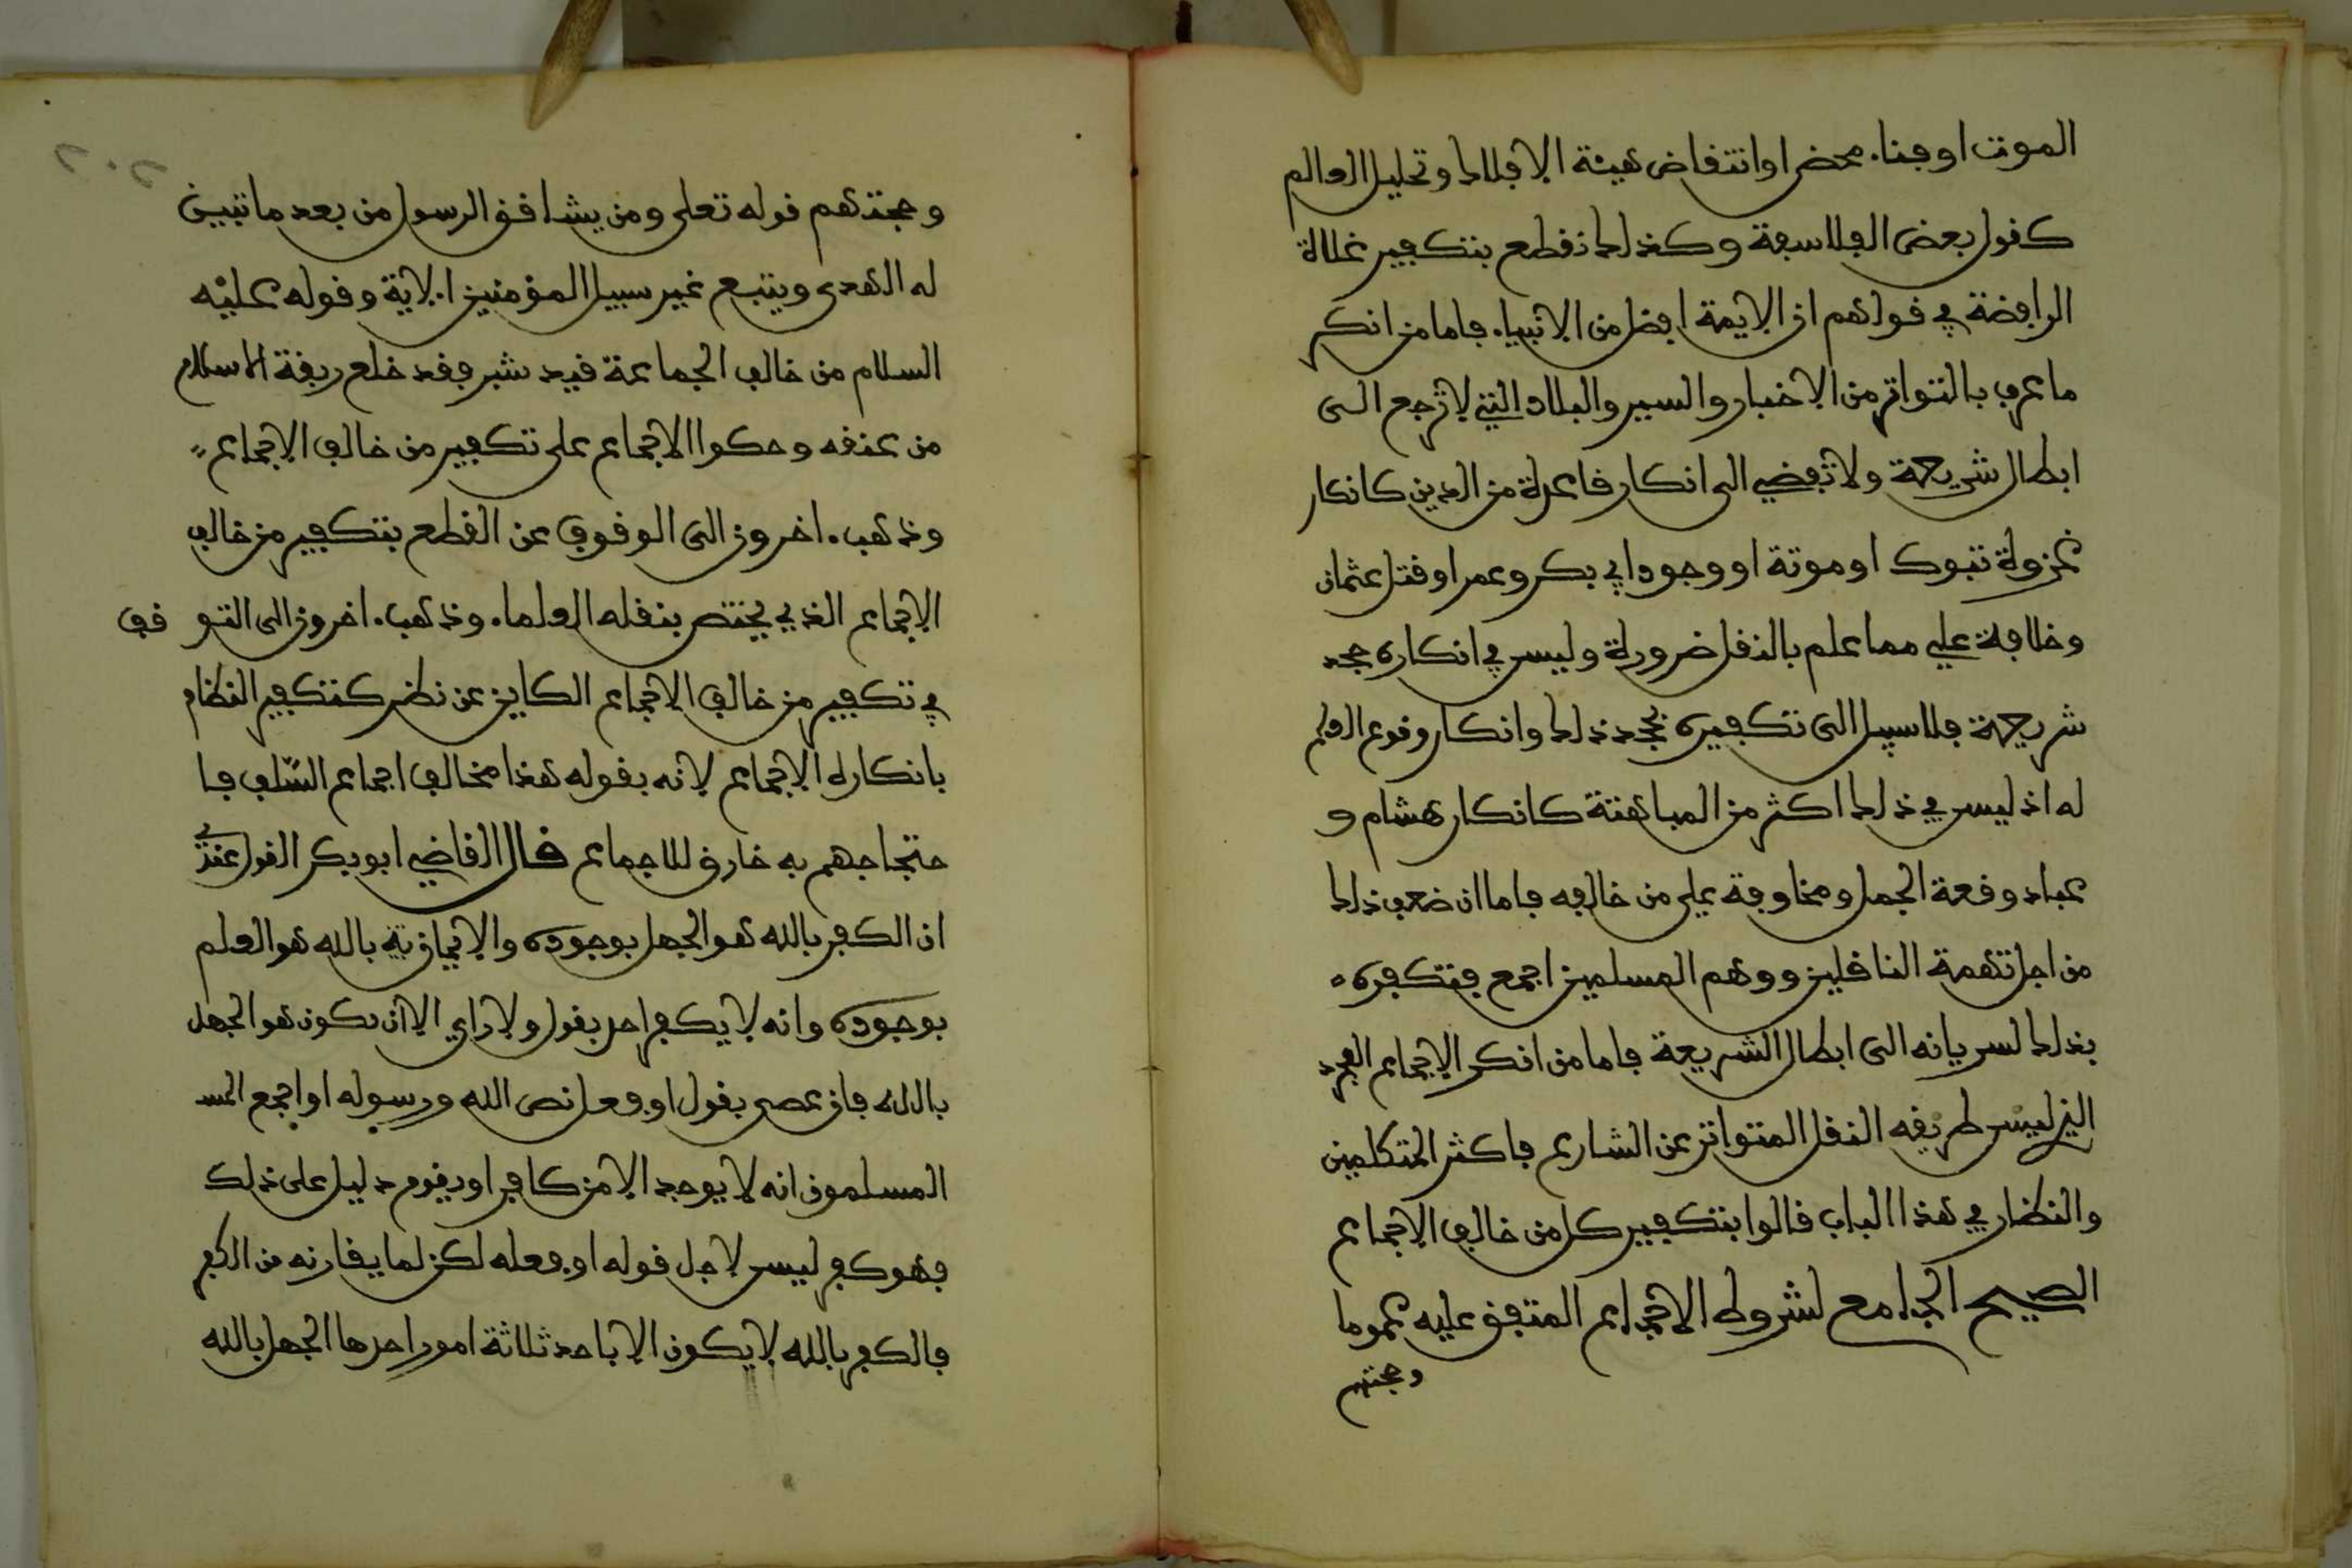 الموت اوفناء محض اوانتقاض هيئة الافلاك وتحليل العالم
كقول بعض الفلاسفة وكذلك نقطع بتكفير غلاة
الرافضة في قولهم ان الايمة افضل من الانبياء فاما من انكر
ما عرف بالتواتر من الاخبار والسير والبلاد التي لا ترجع الى
ابطال شريعة ولا تفضي الى انكار قاعدة من الدين كانكار
غزوة تبوك او موتة او وجود ابي بكر وعمر او قتل عثمان
وخلافة علي مما علم بالنقل ضرورة وليس في انكاره جحد
شريعة فلا سبيل الى تكفيره بجحد ذلك وانكار وقوع العلم
له اذ ليس في ذلك اكثر من المباهتة كانكار هشام و
عباد وقعة الجمل ومحاربة علي من خالفه فاما ان ضعف ذلك
من اجل تهمة الناقلين ووهم المسلمين اجمع فتكفره
بذلك لسريانه الى ابطال الشريعة فاما من انكر الاجماع المجرد
الذي ليس طريقه النقل المتواتر عن الشارع فاكثر المتكلمين
والنظار في هذا الباب قالوا بتكفير كل من خالف الاجماع
الصحيح الجامع لشروط الاجماع المتفق عليه عموما
وحجتهم
٢٠٢
وحجتهم قوله تعلى ومن يشاقق الرسول من بعد ما تبين
له الهدى ويتبع غير سبيل المؤمنين الاية وقوله عليه
السلام من خالف الجماعة قيد شبر فقد خلع ربقة الاسلام
من عنقه وحكوا الاجماع على تكفير من خالف الاجماع
وذهب ءاخرون الى الوقوف عن القطع بتكفير من خالف
الاجماع الذي يختص بنقله العلماء وذهب ءاخرون الى التو قف
في تكفير من خالف الاجماع الكاين عن نظر كتكفير النظام
بانكاره الاجماع لانه بقوله هذا مخالف اجماع السلف فا
حتجاجهم به خارق للاجماع قال القاضي ابو بكر القول عندي
ان الكفر بالله هو الجهل بوجوده والايمان بالله هو العلم
بوجوده وانه لا يكفر احد بقول ولا راي الا ان يكون هو الجهل
بالله فان عصى بقول او فعل نص الله ورسوله او اجمع المسـ
المسلمون انه لا يوجد الا من كافر او يقوم دليل على ذلك
فهو كفر ليس لاجل قوله او فعله لكن لما يقارنه من الكفر
فالكفر بالله لا يكون الا باحد ثلاثة امور احدها الجهل بالله